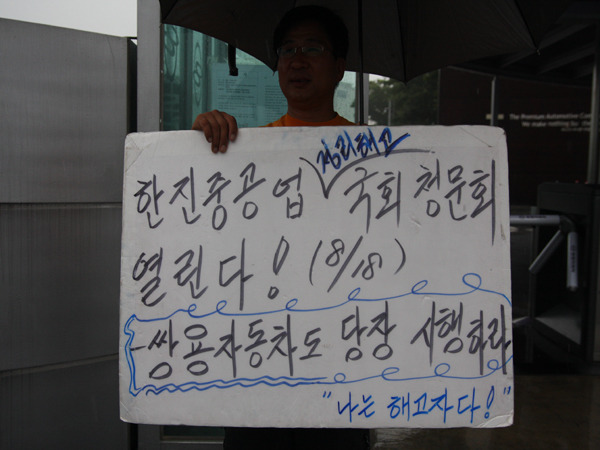 한진중공업 정리해고 국회 청문회
열린다! (8/18)
-쌍용자동차도 당장 시행하라
"나는 해고자다!"
The Premium Automotive Com
We make nothing bu